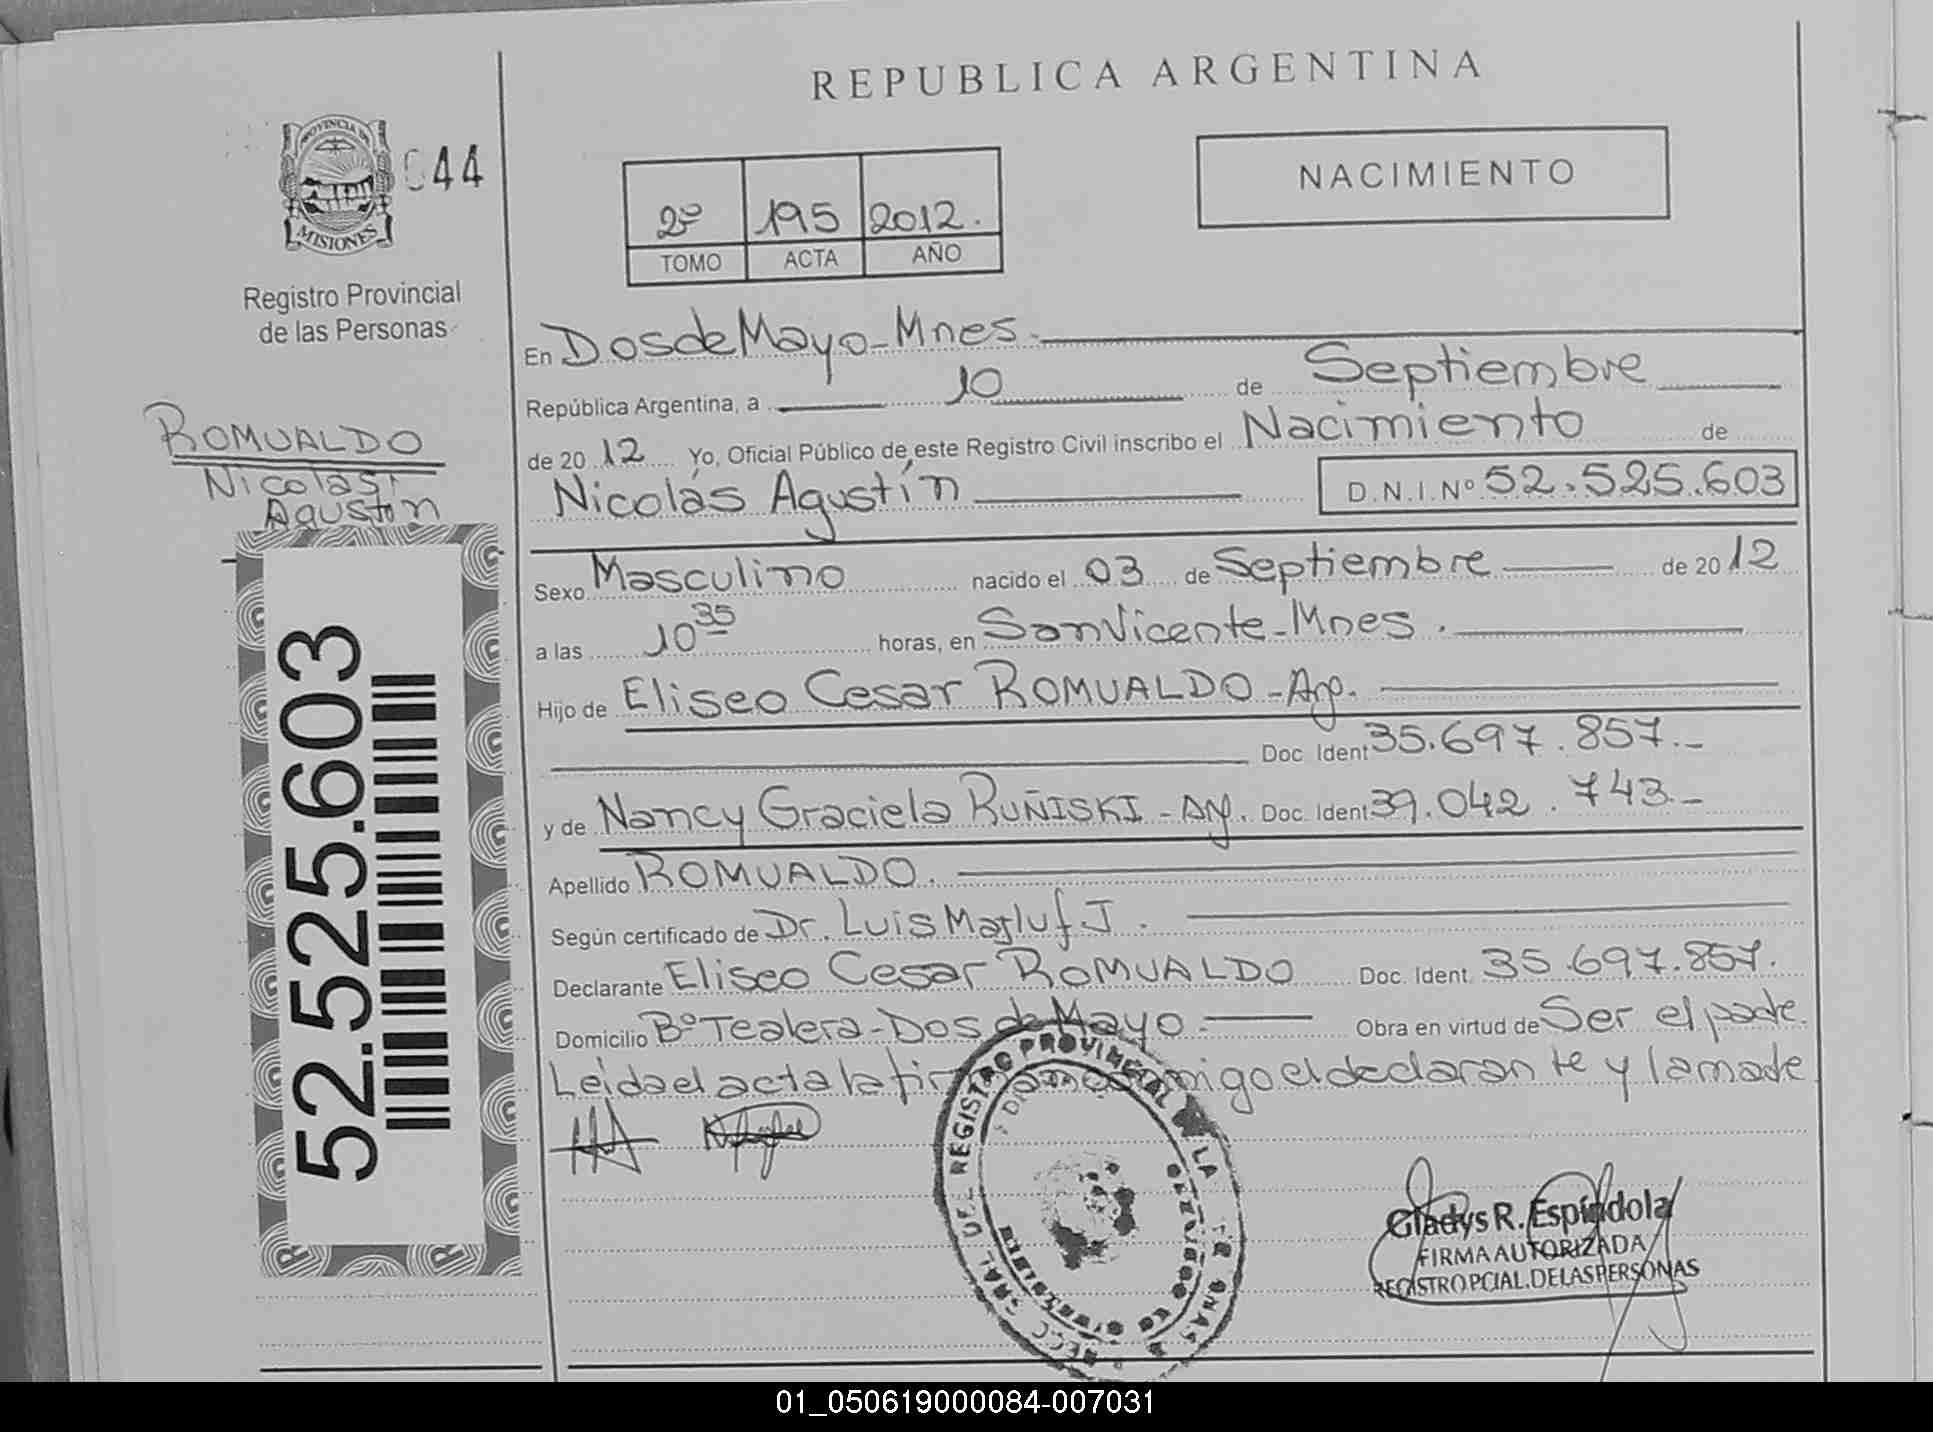 REPUBLICA ARGENTINA
PROVINCIA DE
MISIONES
044
Registro Provincial
de las Personas
NACIMIENTO
2º 195 2012.
TOMO ACTA AÑO
ROMUALDO
Nicolás
Agustín
52.525.603
En Dos de Mayo - Mnes.
República Argentina, a 10 de Septiembre
de 20 12 Yo, Oficial Público de este Registro Civil inscribo el Nacimiento de
Nicolás Agustín D.N.I.Nº 52.525.603
Sexo Masculino nacido el 03 de Septiembre de 20 12
a las 10 35 horas, en San Vicente - Mnes.
Hijo de Eliseo Cesar ROMUALDO - Arg.
Doc. Ident 35.697.857.-
y de Nancy Graciela RUÑISKI - Arg. Doc. Ident 39.042.743.-
Apellido ROMUALDO.
Según certificado de Dr. Luis Majluf J.
Declarante Eliseo Cesar ROMUALDO Doc. Ident. 35.697.857.
Domicilio Bº Tealera - Dos de Mayo.- Obra en virtud de Ser el padre.
Leída el acta la firman conmigo el declarante y la madre
REGISTRO PROVINCIAL DE LA
Gladys R. Espíndola
FIRMA AUTORIZADA
REGISTRO PCIAL. DE LAS PERSONAS
01_050619000084-007031